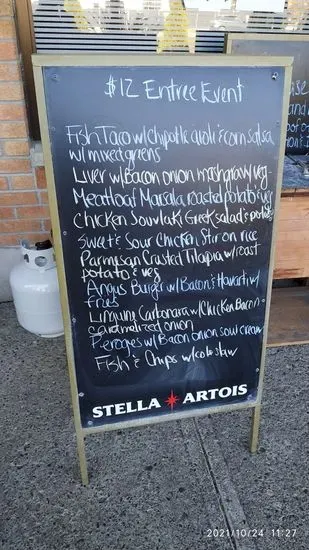 $12 Entree Event
Fish Taco w/chipotle aioli & corn salsa
w/mixed greens
Liver w/Bacon onion mash gravy veg
Meatloaf Marsala roasted potato & veg
Chicken Souvlaki Greek salad &
Sweet & Sour Chicken Stir on rice
Parmesan Crusted Tilapia w/roast
potato & veg
Angus Burger w/Bacon & Havarti w/
fries
Linguine Carbonara w/Chicken Bacon
caramelized onion
Pierogies w/Bacon onion sour cream
Fish & Chips w/coleslaw
STELLA ARTOIS
and
2021/10/24 11:27